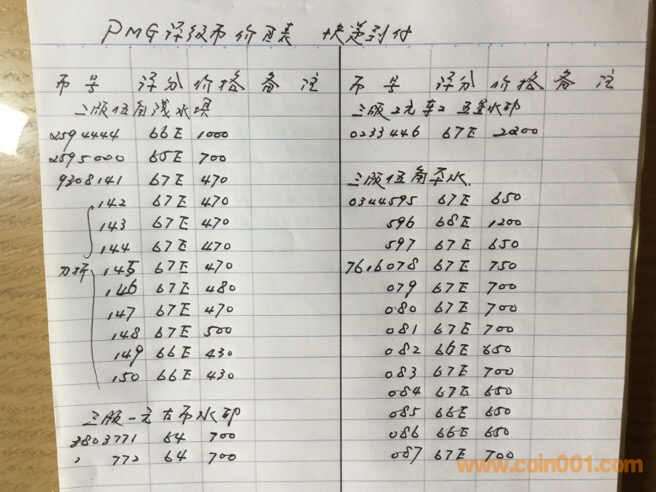 PMG评级币价目表 快递到付
币号 评分 价格 备注
三版伍角浅水坝
2594444 66E 1000
2595000 65E 700
9308141 67E 470
142 67E 470
143 67E 470
144 67E 470
刀评 145 67E 470
146 67E 480
147 67E 470
148 67E 500
149 66E 430
150 66E 430
三版一元古币水印
3803771 64 700
, 772 64 700
币号 评分 价格 备注
三版2元车2 五星水印
0233446 67E 2200
三版伍角平水.
0344595 67E 650
596 68E 1200
597 67E 650
7616078 67E 750
079 67E 700
080 67E 700
081 67E 700
082 66E 650
083 67E 700
084 67E 650
085 66E 650
086 66E 650
087 67E 700
www.coin001.com